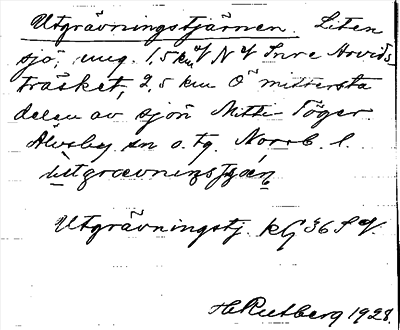 Utgrävningstjärnen. Liten
sjö, ung. 1,5 km N Inre Arvids
träsket, 2,5 km Ö mittersta
delen av sjön Mitti-Töger.
Älvsby sn o. tg. Norrb. l.
Utgrävningstj. kG 36
H Rutberg 1928.